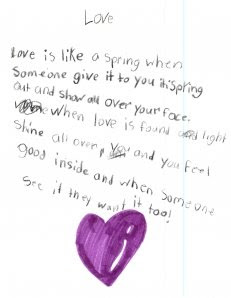 Love
Love is like a spring when
Someone give it to you it spring
out and show all over your face.
When love is found and light
shine all over, you and you feel
good inside and when someone
see it they want it too!